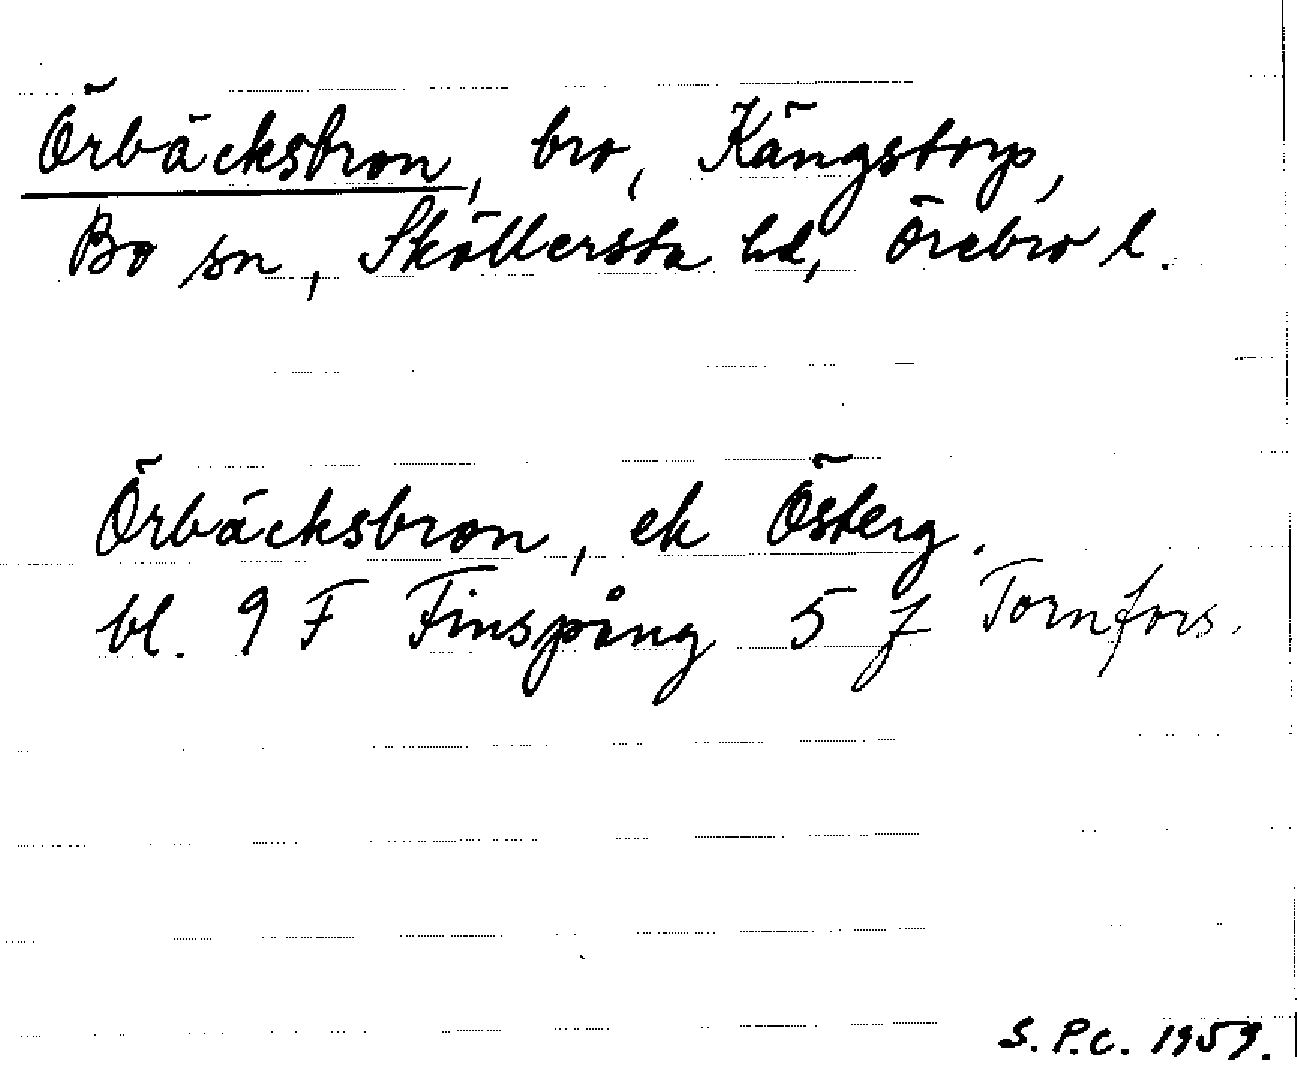 Örbäcksbron, bro, Kängstorp,
Bo sn, Sköllersta hd, Örebro l.
Örbäcksbron, ek Österg.
bl. 9 F Finspång 5 f Tornfors.
S.P.C. 1959.